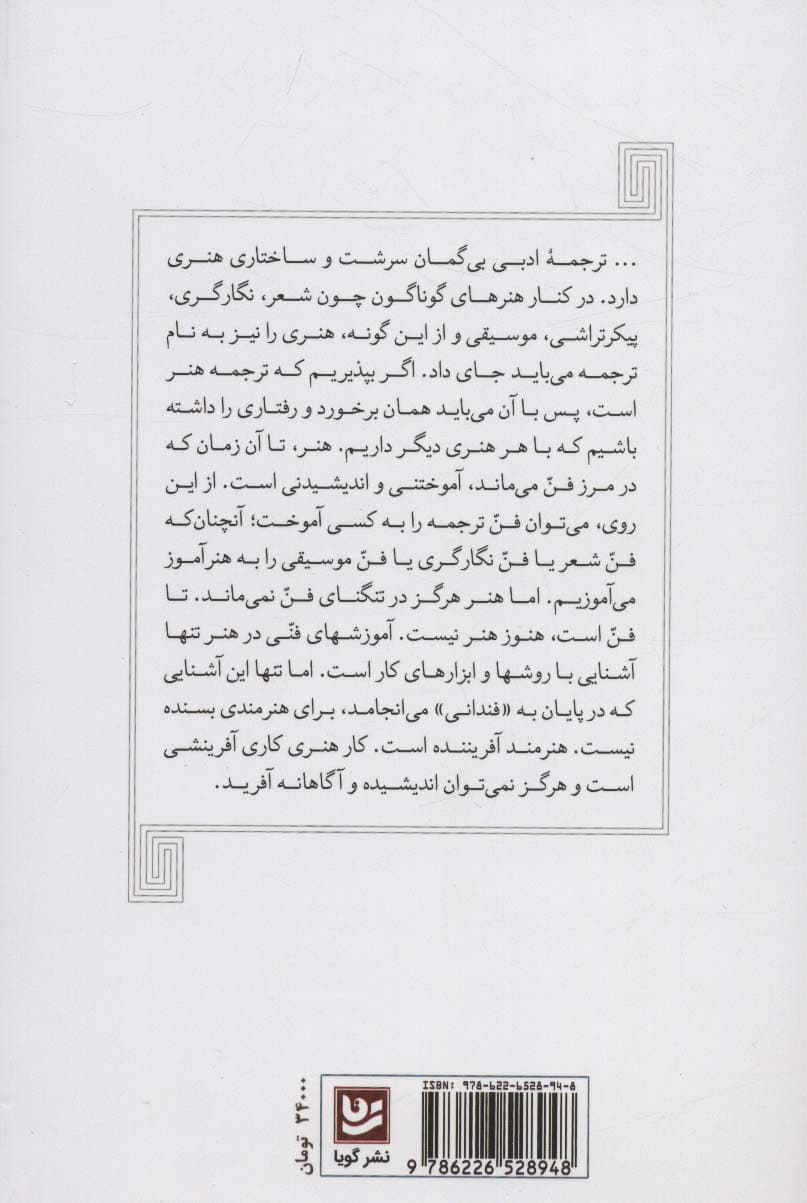 ... ترجمـــهٔ ادبـی بی‌گمـان سرشــت و ســاختاری هنــری
دارد. در کنـار هنرهـای گوناگـون چـون شـعر، نگارگـری،
پیکرتراشـی، موسـیقی و از ایـن گونـه، هنـری را نیـز بـه نـام
ترجمـه می‌بایـد جـای داد. اگـر بپذیریـم کـه ترجمـه هنـر
اسـت، پـس بـا آن می‌بایـد همـان برخـورد و رفتـاری را داشته
باشـیم کـه بـا هـر هنـری دیگـر داریـم. هنـر، تـا آن زمـان کـه
در مـرز فـنّ می‌مانـد، آموختنـی و اندیشـیدنی اسـت. از ایـن
روی، می‌تـوان فـنّ ترجمـه را بـه کسـی آموخـت؛ آنچنـان‌کـه
فـنّ شـعر یـا فـنّ نگارگـری یـا فـنّ موسـیقی را بـه هنرآمـوز
می‌آموزیـم. امـا هنـر هرگـز در تنگنـای فـنّ نمی‌مانـد. تـا
فـنّ اسـت، هنـوز هنـر نیسـت. آموزشـهای فنّـی در هنـر تنهـا
آشـنایی بـا روشـها و ابزارهـای کار اسـت. امـا تنهـا این آشنایی
کـه در پایـان بـه «فندانـی» می‌انجامـد، بـرای هنرمنـدی بسنده
نیسـت. هنرمنـد آفریننـده اسـت. کار هنـری کاری آفرینشـی
اسـت و هرگـز نمی‌تـوان اندیشـیده و آگاهانـه آفریـد.
ISBN: 978-622-6528-94-8
9 786226 528948
نشر گویا
۳۴۰۰۰ تومان